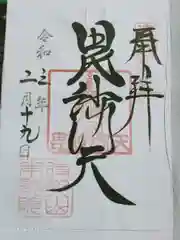 奉拝
毘沙門天
令和三年
二月十九日